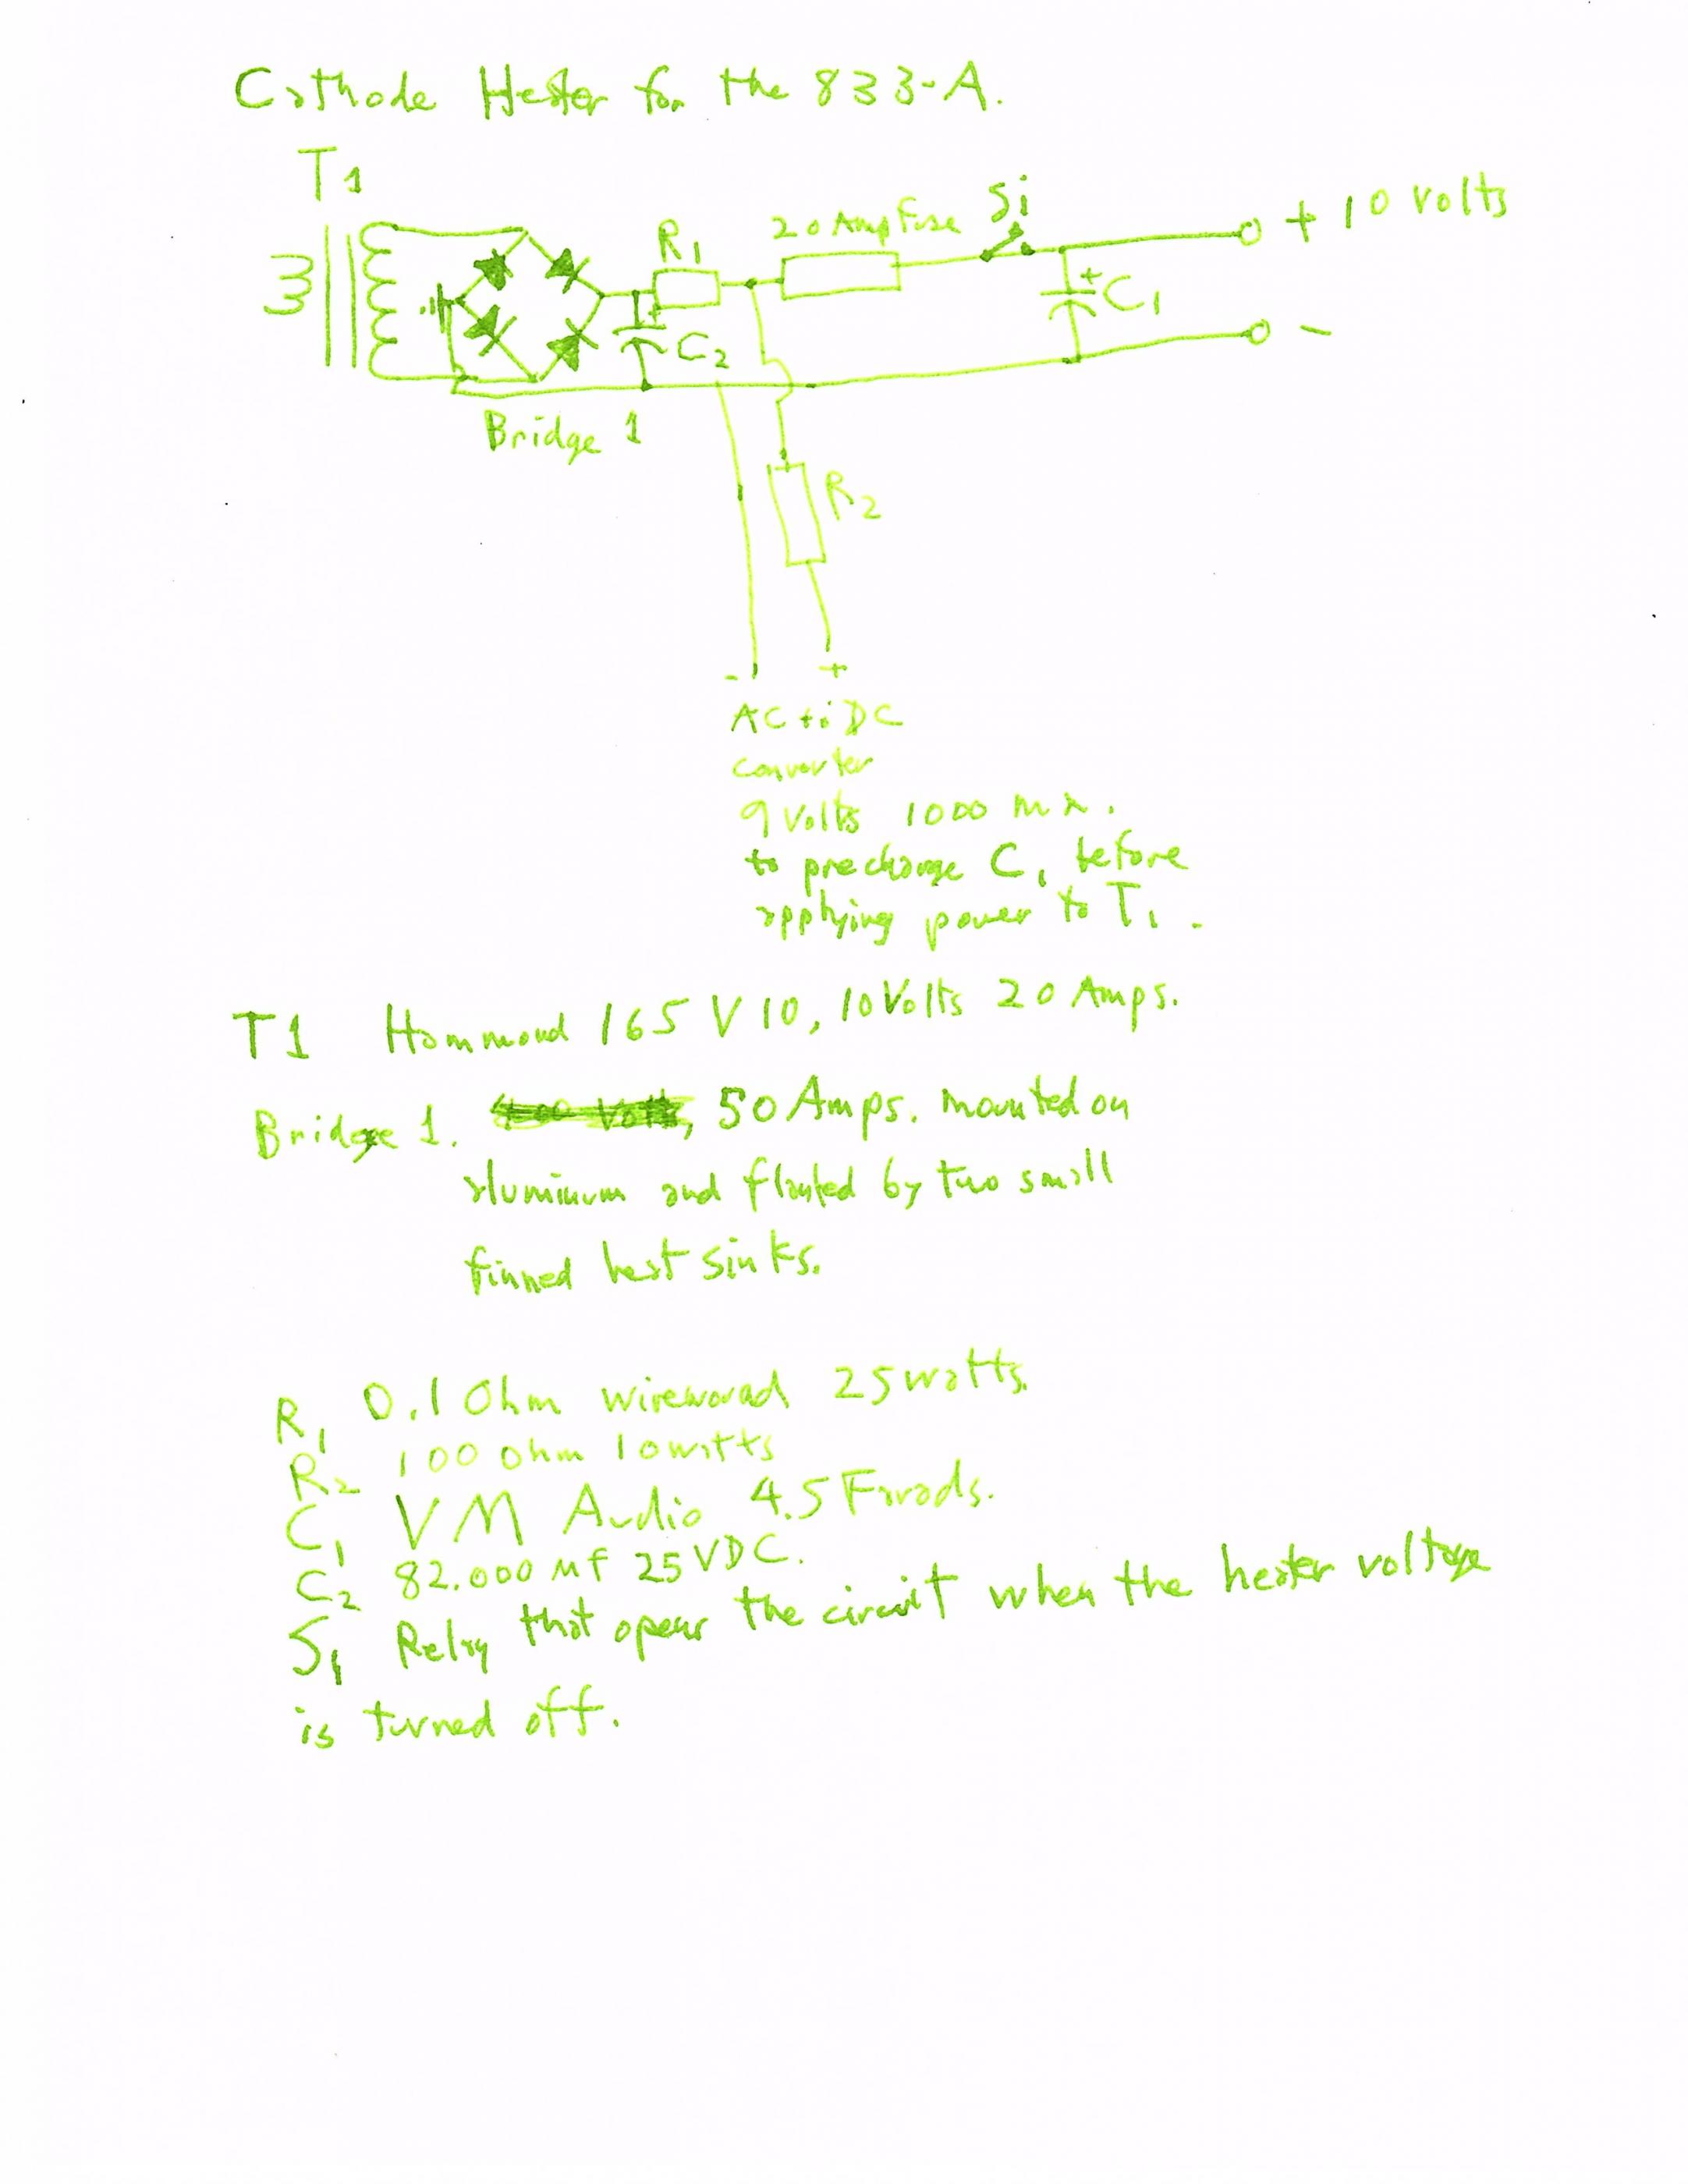 Cathode Heater for the 833-A.
T1
R1
20 Amp Fuse
Si
+ 10 Volts
+
C1
+
C2
-
Bridge 1
R2
- +
AC to DC
converter
9 Volts 1000 ma.
to precharge C1 before
applying power to T1.
T1 Hammond 165 V 10, 10 Volts 20 Amps.
Bridge 1. 50 Amps. mounted on
aluminum and flanked by two small
finned heat sinks.
R1 0.1 Ohm wirewound 25 watts.
R2 100 Ohm 10 watts
C1 VM Audio 4.5 Farads.
C2 82.000 Mf 25 VDC.
S1 Relay that opens the circuit when the heater voltage
is turned off.